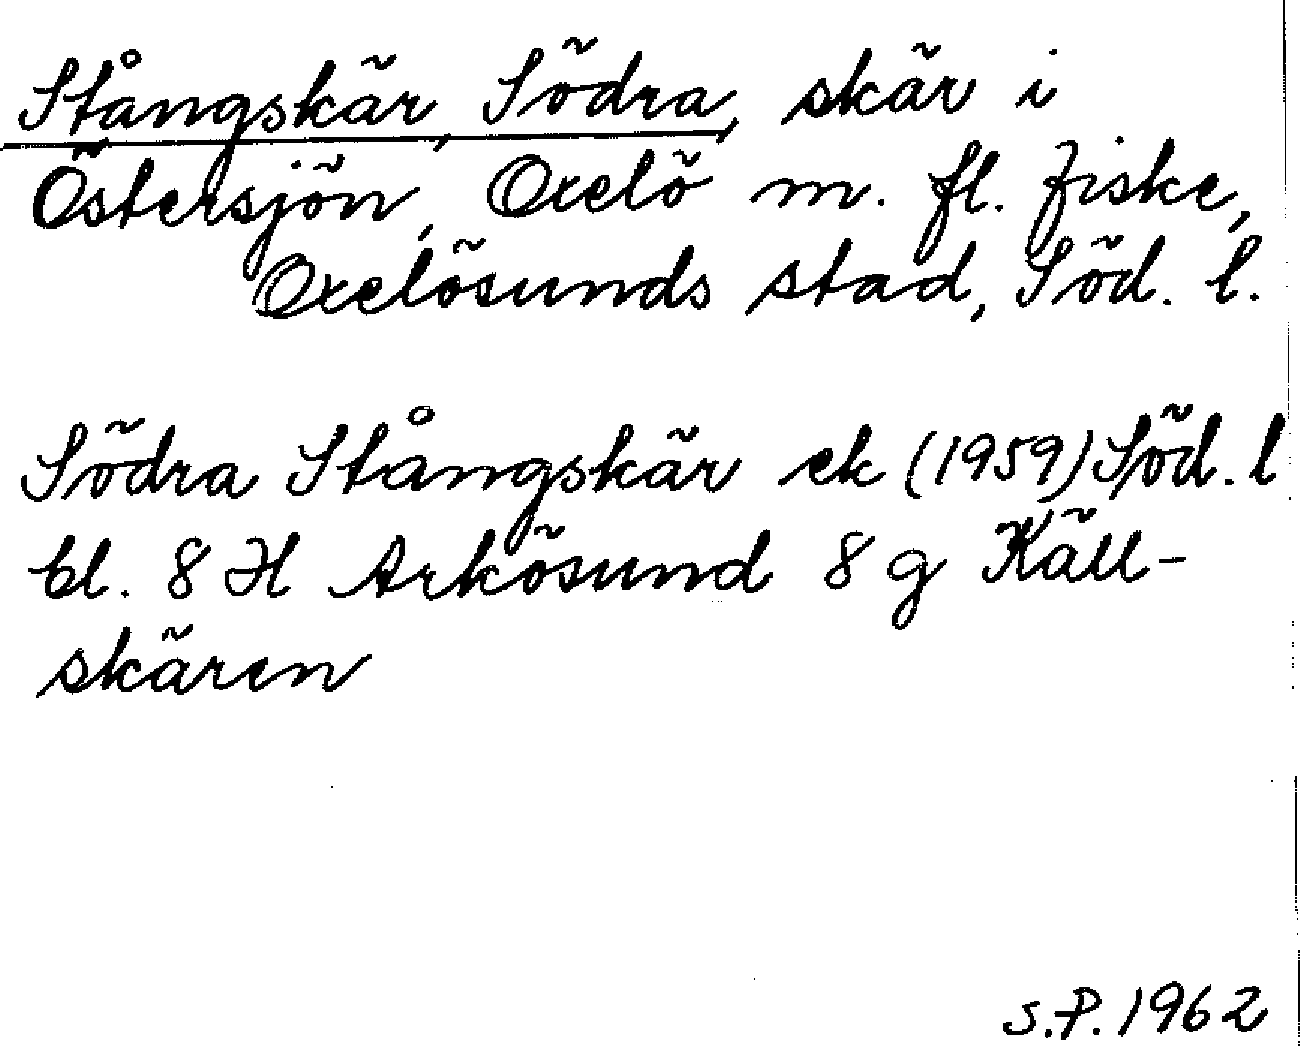 Stångskär, Södra, skär i
Östersjön, Oxelö m. fl. fiske,
Oxelösunds stad, Söd. l.
Södra Stångskär ek (1959) Söd. l
bl. 8 H Arkösund 8 g Käll-
skären
S.P. 1962